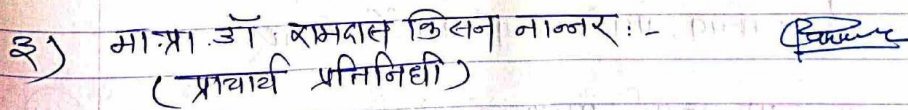 ३) मा.प्रा. डॉ रामदास किसन नान्नर :-
(प्राचार्य प्रतिनिधी)